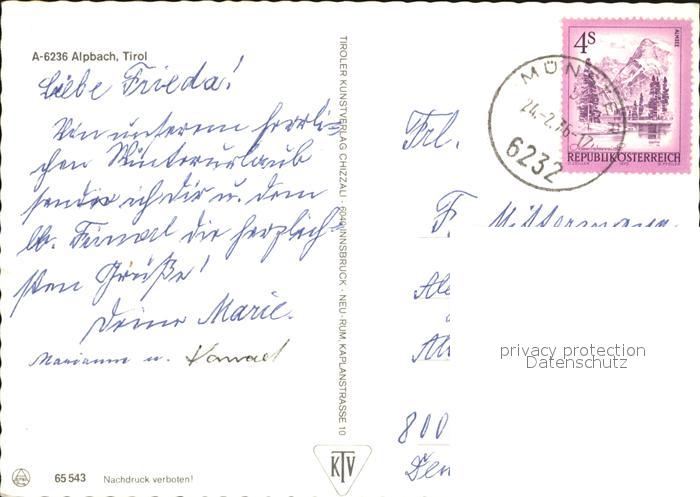 A-6236 Alpbach, Tirol
Liebe Frieda!
Von unserem herrli-
chen Winterurlaub
sende ich dir u. dem
lb. die herzlich-
sten Grüße!
Deine Marie.
Marianne u. Konrad
65 543 Nachdruck verboten!
TIROLER KUNSTVERLAG CHIZZALI · 6040 INNSBRUCK · NEU-RUM, KAPLANSTRASSE 10
KTV
4S
ALMSEE
REPUBLIK ÖSTERREICH
MÜNSTER
24.-2.76-12
6232
Frl.
F.
800
privacy protection
Datenschutz